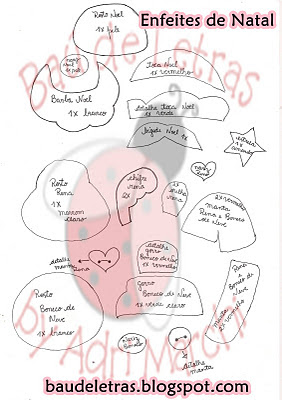 Enfeites de Natal
Rosto Noel
1x pele
Baú de Letras
Nariz
Noel
Barba Noel
1x branco
Toca Noel
1x vermelho
detalhe Toca Noel
1x verde
Bigode Noel 1x
estrela
1x
amarelo
Rosto
Rena
1x
marrom
claro
chifre
rena
2x
2x
orelha
rena
nariz
rena
2x vermelho
manta
Rena e Boneco
de Neve
detalhe
manta
Rena
detalhe
gorro
Boneco de Neve
1x vermelho
gorro
Boneco de Neve
1x verde claro
Rosto
Boneco de
Neve
1x branco
Rena e
Boneco de
Neve
manta
2x vermelho
Nariz
Boneco
detalhe
manta
by Adri
baudeletras.blogspot.com